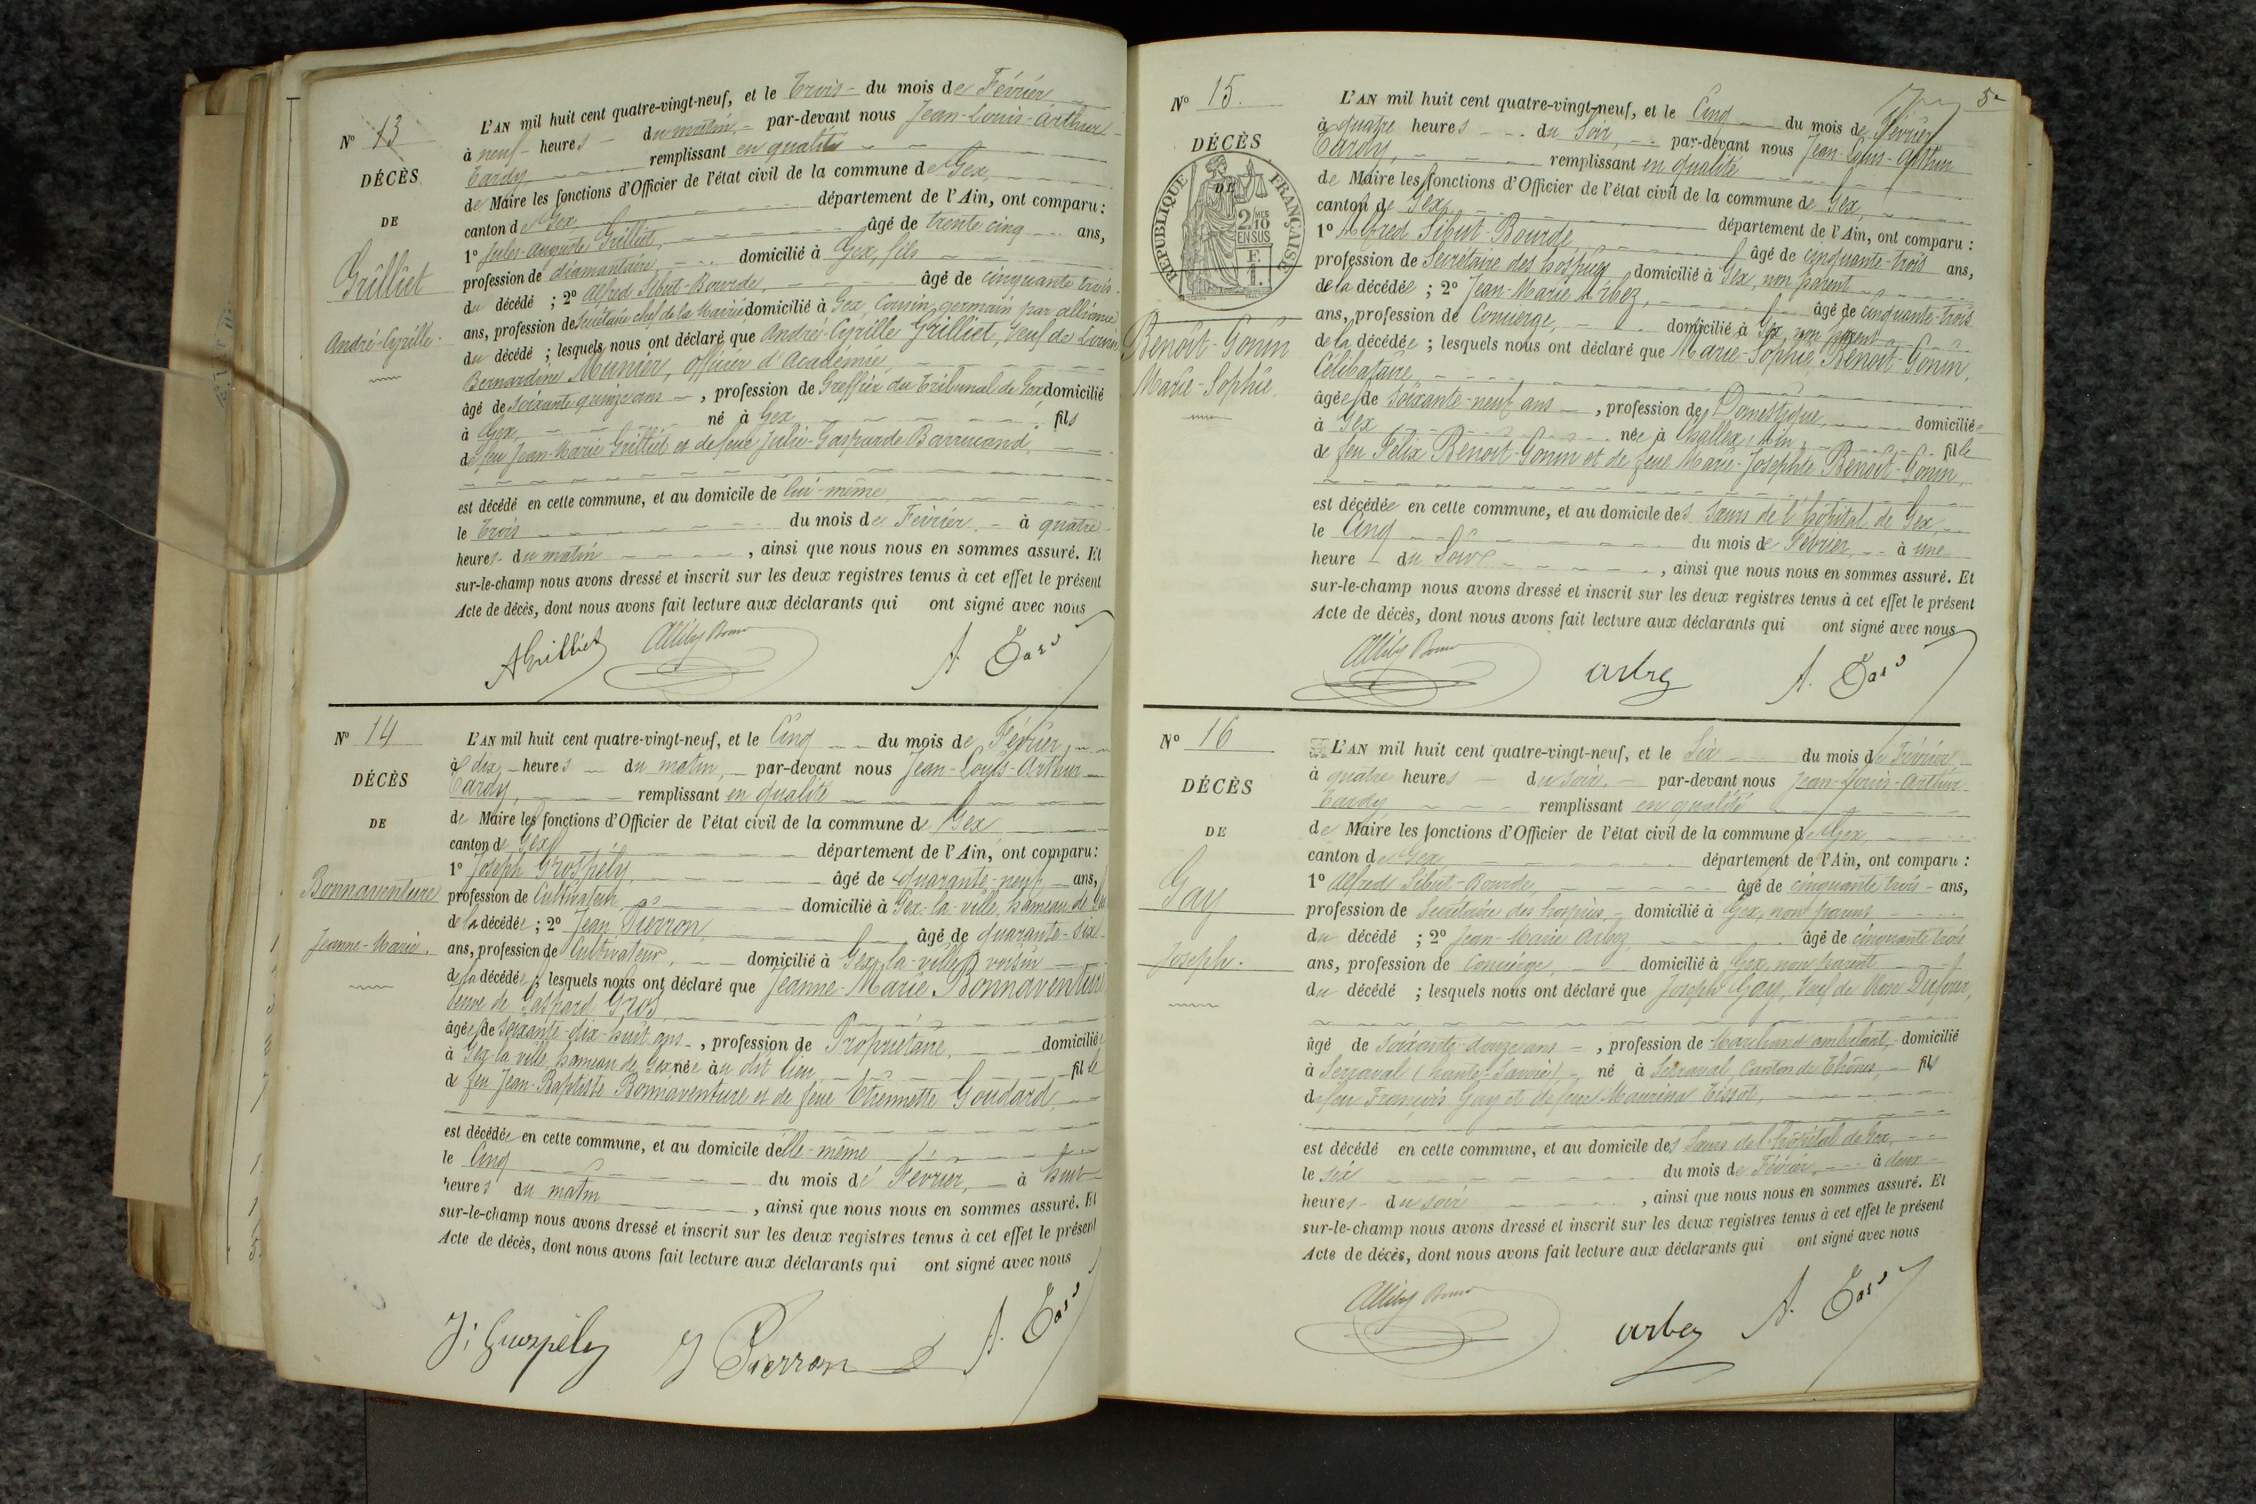 N° 13
DÉCÈS
DE
Grilliet
André-Cyrille
L'AN mil huit cent quatre-vingt-neuf, et le Trois du mois de Février
à neuf heures du matin, par-devant nous Jean-Louis-Arthur
Tardy remplissant en qualité
de Maire les fonctions d'Officier de l'état civil de la commune de Gex,
canton de Gex département de l'Ain, ont comparu :
1° Jules-Auguste Grilliet, âgé de trente cinq ans,
profession de diamantaire, domicilié à Gex, fils
du décédé ; 2° Alfred Sibut-Bourde, âgé de cinquante trois
ans, profession de Secrétaire chef de la Mairie domicilié à Gex, Cousin germain par alliance
du décédé ; lesquels nous ont déclaré que André-Cyrille Grilliet, Veuf de Louise
Bernardine Munier, officier d'Académie,
âgé de soixante quinze ans, profession de Greffier du Tribunal de Gex domicilié
à Gex, né à Gex fils
de feu Jean-Marie Grilliet et de feue Julie-Gasparde Barrucand,
est décédé en cette commune, et au domicile de lui-même
le Trois du mois de Février à quatre
heures du matin, ainsi que nous nous en sommes assuré. Et
sur-le-champ nous avons dressé et inscrit sur les deux registres tenus à cet effet le présent
Acte de décès, dont nous avons fait lecture aux déclarants qui ont signé avec nous
AGrilliet A. Tardy
N° 14
DÉCÈS
DE
Bonnaventure
Jeanne-Marie.
L'AN mil huit cent quatre-vingt-neuf, et le Cinq du mois de Février,
à dix heures du matin, par-devant nous Jean-Louis-Arthur
Tardy, remplissant en qualité
de Maire les fonctions d'Officier de l'état civil de la commune de Gex
canton de Gex département de l'Ain, ont comparu :
1° Joseph Grospély, âgé de quarante-neuf ans,
profession de Cultivateur domicilié à Gex-la-ville, hameau de Gex
de la décédée ; 2° Jean Pierron, âgé de quarante-six
ans, profession de Cultivateur, domicilié à Gex-la-ville, voisin
de la décédée ; lesquels nous ont déclaré que Jeanne-Marie Bonnaventure
veuve de Gaspard Gros,
âgée de soixante-dix-huit ans, profession de Propriétaire, domiciliée
à Gex-la-ville, hameau de Gex née au dit lieu, fille
de feu Jean-Baptiste Bonnaventure et de feue Etiennette Goudard,
est décédée en cette commune, et au domicile d'elle-même
le Cinq du mois de Février, à huit
heures du matin, ainsi que nous nous en sommes assuré. Et
sur-le-champ nous avons dressé et inscrit sur les deux registres tenus à cet effet le présent
Acte de décès, dont nous avons fait lecture aux déclarants qui ont signé avec nous
J: Grospély J Pierron A. Tardy
5
N° 15.
DÉCÈS
DE
RÉPUBLIQUE FRANÇAISE
2 10 MES
EN SUS
Benoit-Gonin
Marie-Sophie.
L'AN mil huit cent quatre-vingt-neuf, et le Cinq du mois de Février
à quatre heures du soir, par-devant nous Jean-Louis-Arthur
Tardy, remplissant en qualité
de Maire les fonctions d'Officier de l'état civil de la commune de Gex,
canton de Gex, département de l'Ain, ont comparu :
1° Alfred Sibut-Bourde, âgé de cinquante-trois ans,
profession de Secrétaire des hospices domicilié à Gex, non parent
de la décédée ; 2° Jean-Marie Arbez, âgé de cinquante-trois
ans, profession de Concierge, domicilié à Gex, non parent
de la décédée ; lesquels nous ont déclaré que Marie-Sophie Benoit-Gonin,
Célibataire
âgée de soixante-neuf ans, profession de Domestique, domiciliée
à Gex née à Challex, Ain, fille
de feu Félix Benoit-Gonin et de feue Marie-Josephte Benoit-Gonin,
est décédée en cette commune, et au domicile des sœurs de l'hôpital de Gex,
le Cinq du mois de Février, à une
heure du soir, ainsi que nous nous en sommes assuré. Et
sur-le-champ nous avons dressé et inscrit sur les deux registres tenus à cet effet le présent
Acte de décès, dont nous avons fait lecture aux déclarants qui ont signé avec nous
arbez A. Tardy
N° 16
DÉCÈS
DE
Gay
Joseph.
L'AN mil huit cent quatre-vingt-neuf, et le Six du mois de Février
à quatre heures du soir, par-devant nous Jean-Louis-Arthur
Tardy remplissant en qualité
de Maire les fonctions d'Officier de l'état civil de la commune de Gex,
canton de Gex département de l'Ain, ont comparu :
1° Alfred Sibut-Bourde, âgé de cinquante trois ans,
profession de Secrétaire des hospices, domicilié à Gex, non parent
du décédé ; 2° Jean-Marie Arbez, âgé de cinquante trois
ans, profession de Concierge, domicilié à Gex, non parent
du décédé ; lesquels nous ont déclaré que Joseph Gay, Veuf de Dufour,
âgé de soixante-douze ans, profession de Marchand ambulant, domicilié
à Serraval (haute-Savoie), né à Serraval, Canton de Thônes, fils
de feu François Gay et de feue Maurina Tissot,
est décédé en cette commune, et au domicile des sœurs de l'hôpital de Gex,
le six du mois de Février, à deux
heures du soir, ainsi que nous nous en sommes assuré. Et
sur-le-champ nous avons dressé et inscrit sur les deux registres tenus à cet effet le présent
Acte de décès, dont nous avons fait lecture aux déclarants qui ont signé avec nous
arbez A. Tardy